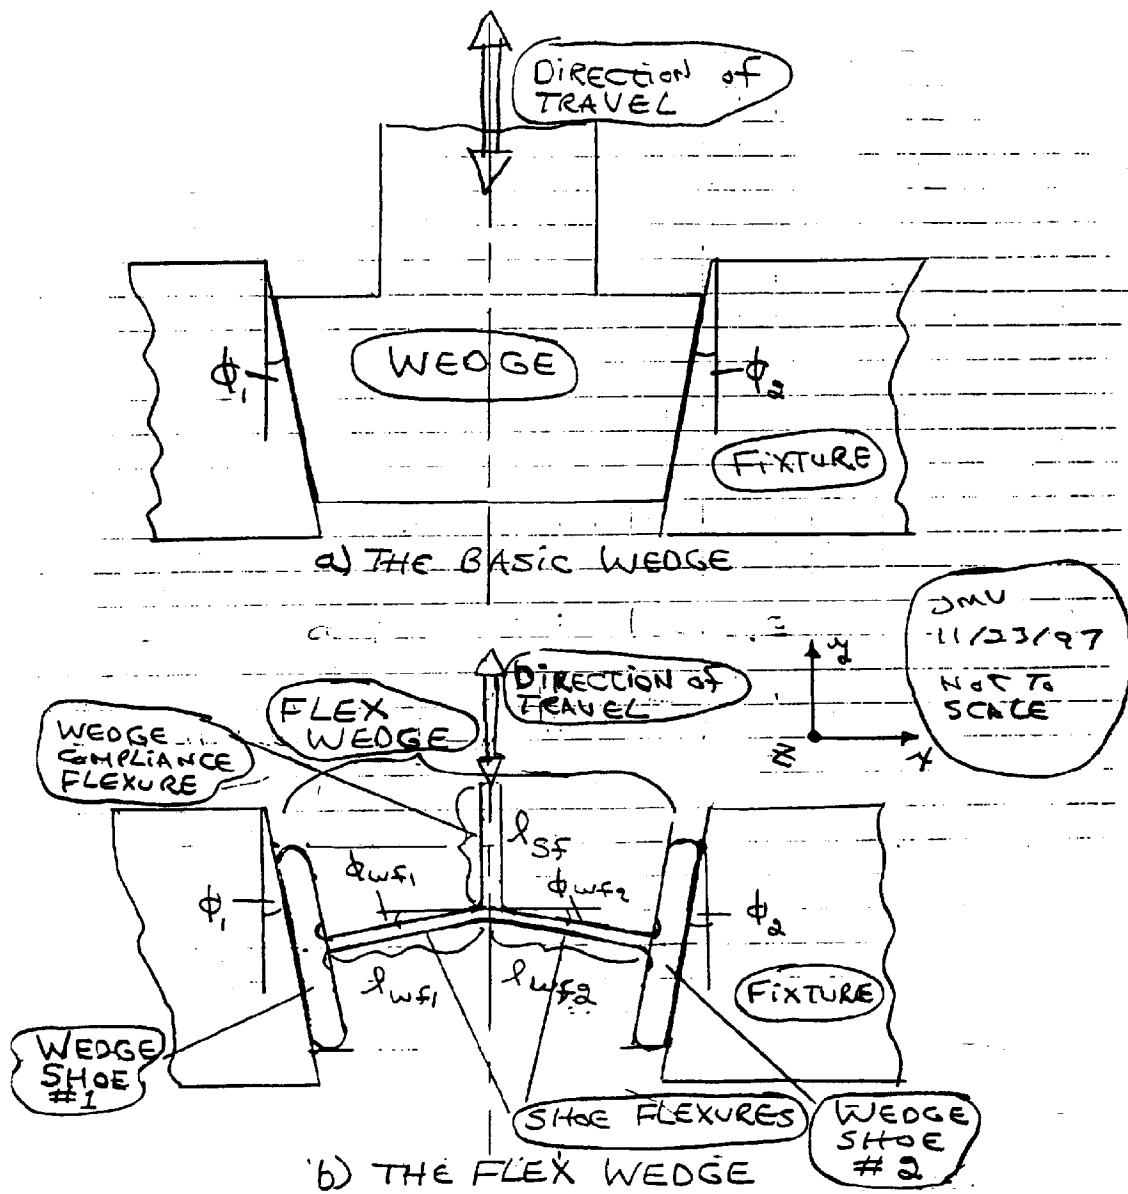 DIRECTION of
TRAVEL
WEDGE
ϕ₁
ϕ₂
FIXTURE
a) THE BASIC WEDGE
JMV
11/23/97
NOT TO
SCALE
y
x
z
DIRECTION of
TRAVEL
FLEX
WEDGE
WEDGE
COMPLIANCE
FLEXURE
l_sf
ϕ_wf1
ϕ_wf2
ϕ₁
ϕ₂
l_wf1
l_wf2
FIXTURE
WEDGE
SHOE
#1
SHOE FLEXURES
WEDGE
SHOE
# 2
b) THE FLEX WEDGE